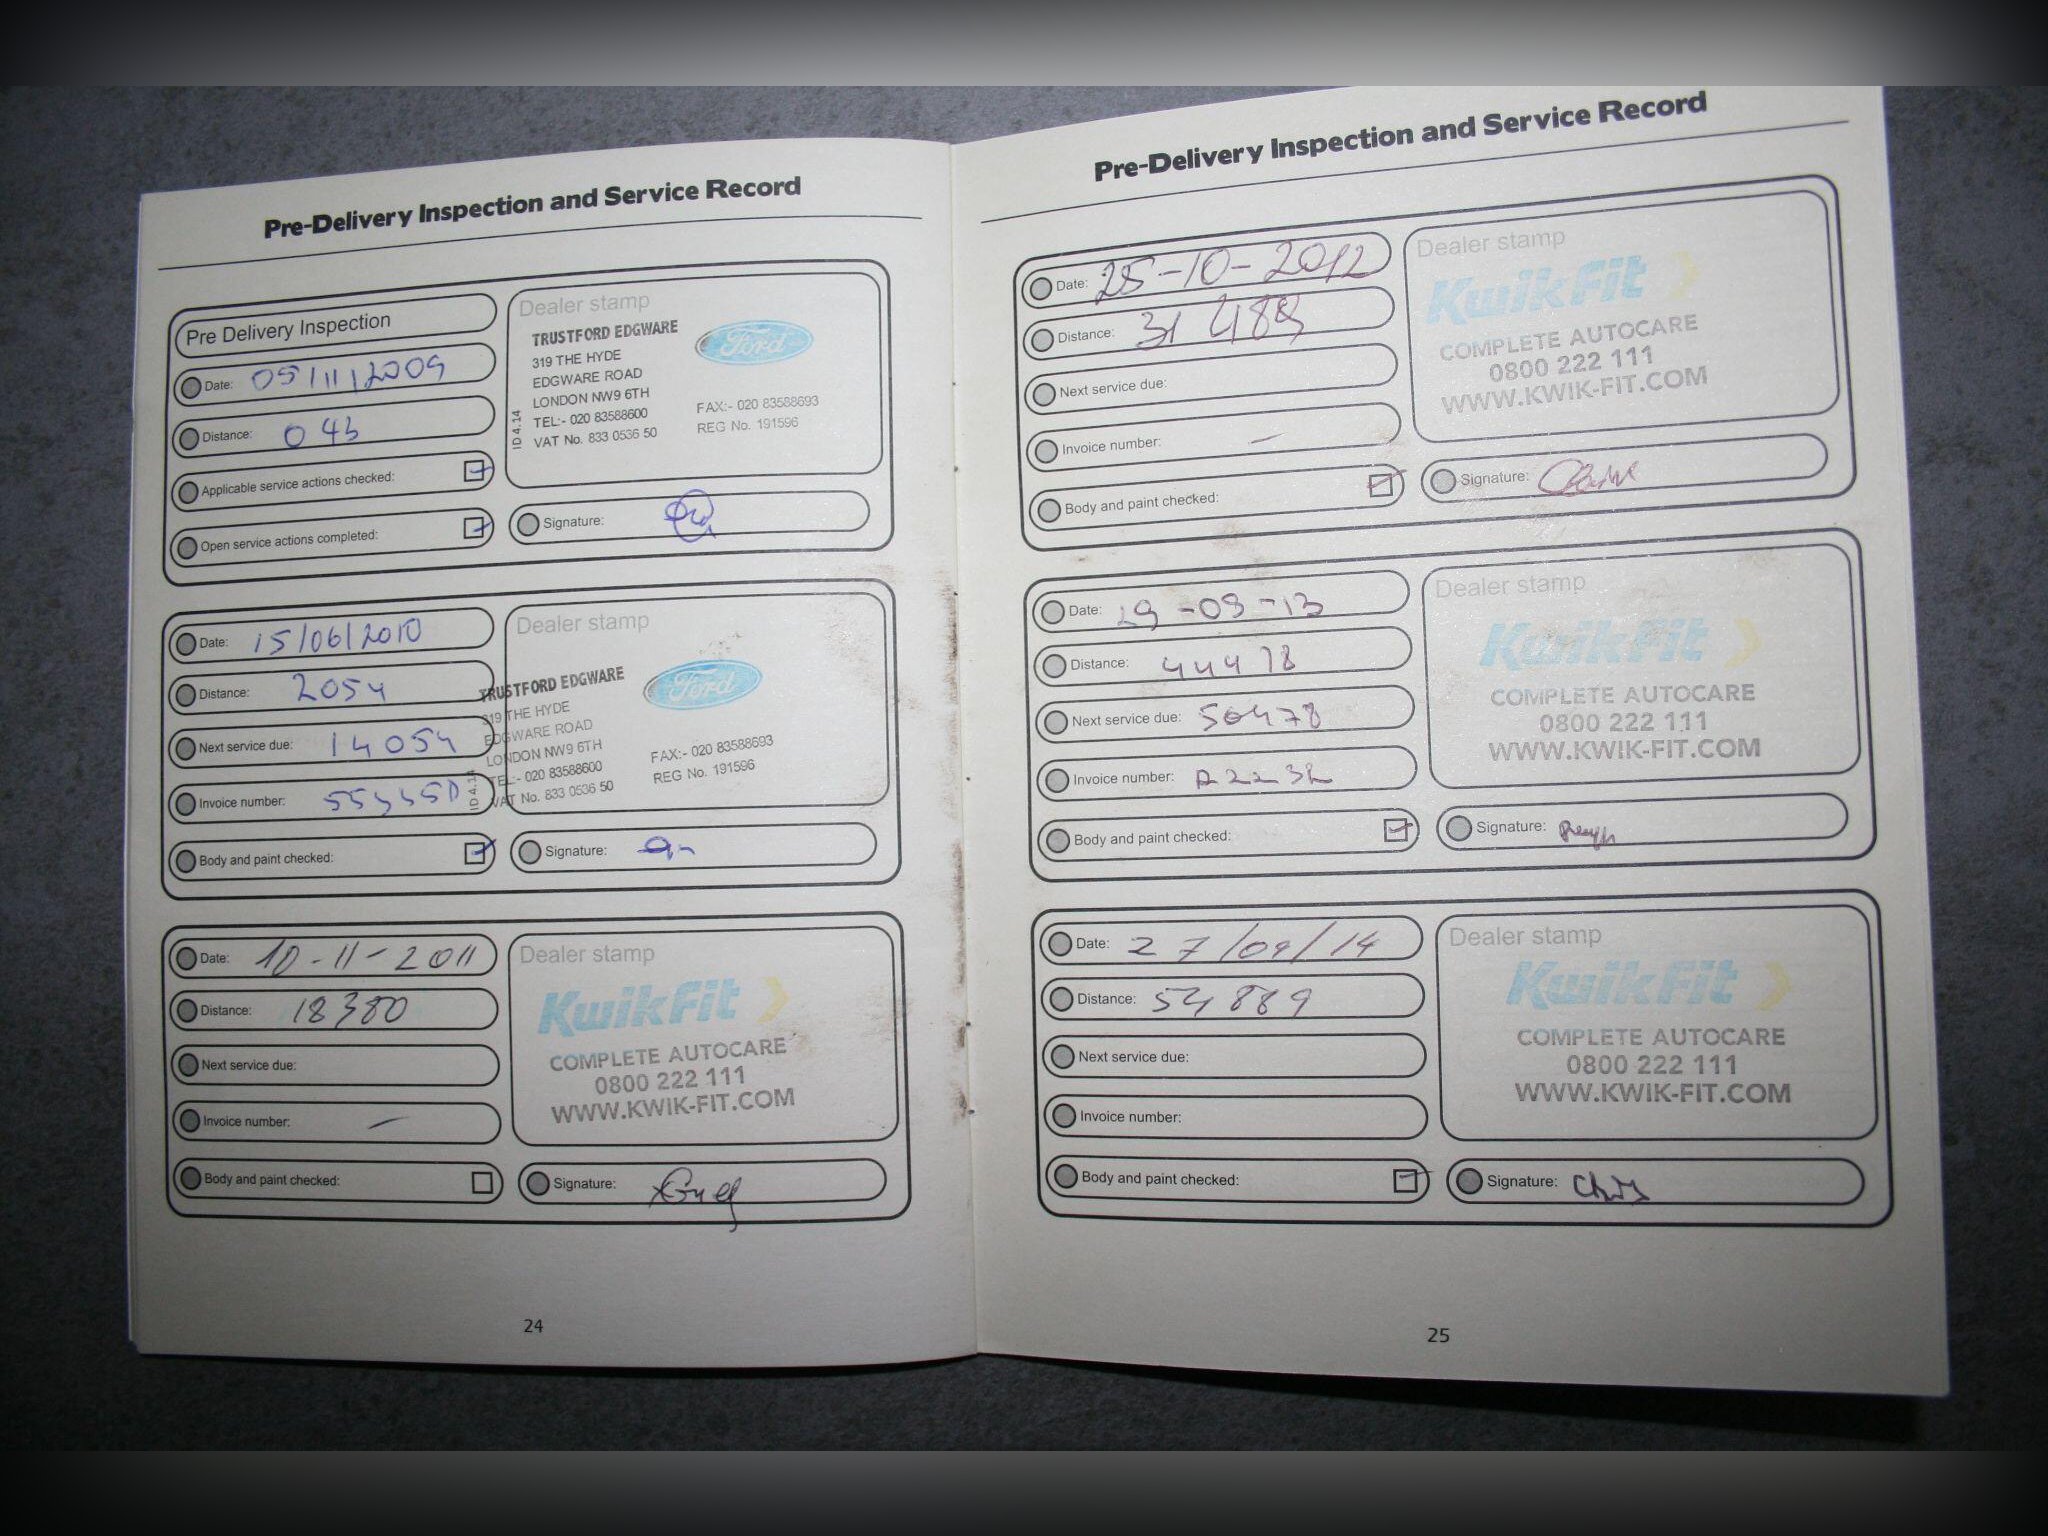 Pre-Delivery Inspection and Service Record
Pre Delivery Inspection
Date: 05/11/2009
Distance: 043
Applicable service actions checked:
Open service actions completed:
Dealer stamp
TRUSTFORD EDGWARE
319 THE HYDE
EDGWARE ROAD
LONDON NW9 6TH
TEL:- 020 83588600
VAT No. 833 0536 50
FAX:- 020 83588693
REG No. 191596
ID 4.14
Ford
Signature:
Date: 15/06/2010
Distance: 2054
Next service due: 14054
Invoice number:
Body and paint checked:
Dealer stamp
TRUSTFORD EDGWARE
319 THE HYDE
EDGWARE ROAD
LONDON NW9 6TH
TEL:- 020 83588600
VAT No. 833 0536 50
FAX:- 020 83588693
REG No. 191596
ID 4.14
Ford
Signature:
Date: 10-11-2011
Distance: 18380
Next service due:
Invoice number: -
Body and paint checked:
Dealer stamp
KwikFit
COMPLETE AUTOCARE
0800 222 111
WWW.KWIK-FIT.COM
Signature:
24
Pre-Delivery Inspection and Service Record
Date: 25-10-2012
Distance: 31 489
Next service due:
Invoice number: -
Body and paint checked:
Dealer stamp
KwikFit
COMPLETE AUTOCARE
0800 222 111
WWW.KWIK-FIT.COM
Signature:
Date: 29-09-13
Distance: 44478
Next service due: 50478
Invoice number:
Body and paint checked:
Dealer stamp
KwikFit
COMPLETE AUTOCARE
0800 222 111
WWW.KWIK-FIT.COM
Signature:
Date: 27/09/14
Distance: 54889
Next service due:
Invoice number:
Body and paint checked:
Dealer stamp
KwikFit
COMPLETE AUTOCARE
0800 222 111
WWW.KWIK-FIT.COM
Signature: Chris
25